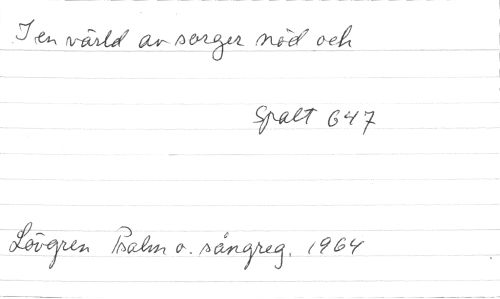 I en värld av sorger nöd och
Spalt 647
Lövgren Psalm o. sångreg. 1964